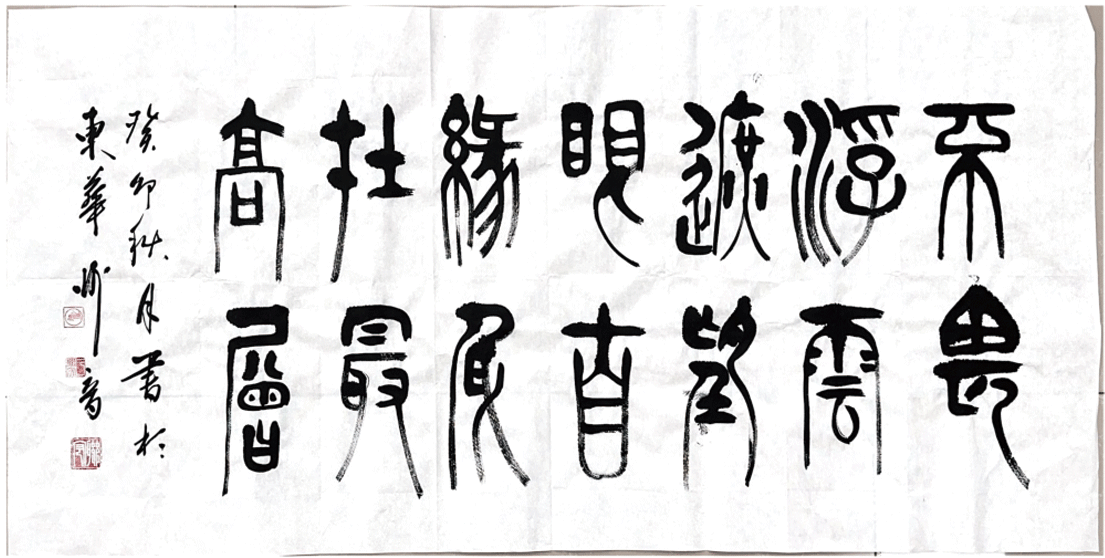 不畏
浮雲
遮望
眼自
緣身
在最
高層
癸卯秋月書於
東華